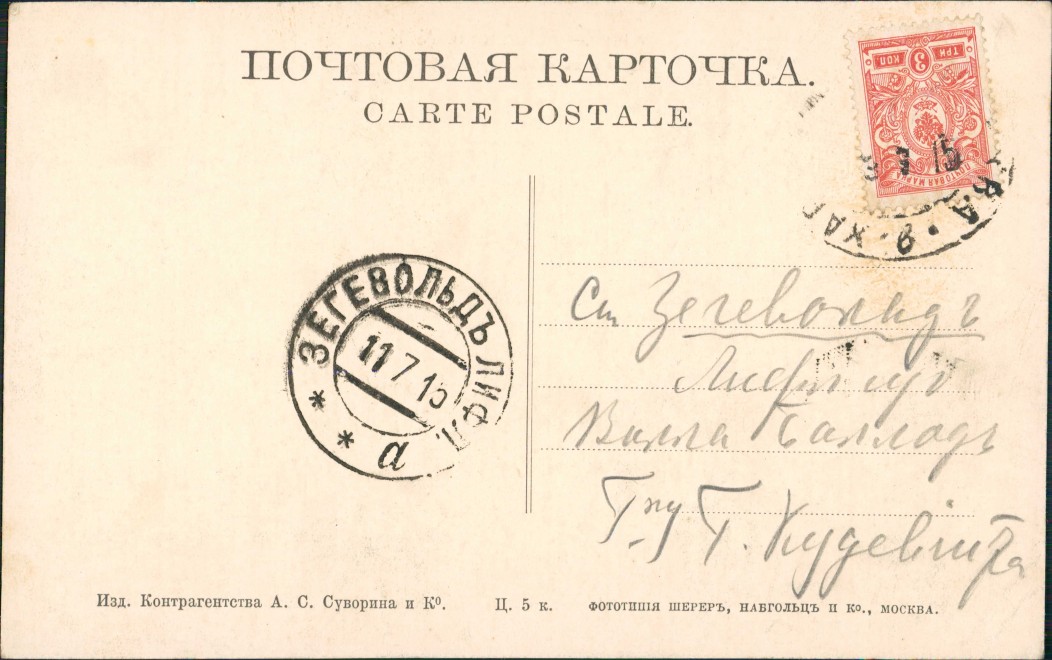 ПОЧТОВАЯ КАРТОЧКА.
CARTE POSTALE.
ТРИ 3 КОП
ПОЧТОВАЯ МАРКА
ЗЕГЕВОЛЬДЪ ЛИФЛ.
11 7 15
а
Ст Зегевольдъ
Лифл губ
Вилла Баллодъ
Г-ну Г.
Изд. Контрагентства А. С. Суворина и Ко.
Ц. 5 к.
ФОТОТИПІЯ ШЕРЕРЪ, НАБГОЛЬЦЪ И Ко., МОСКВА.